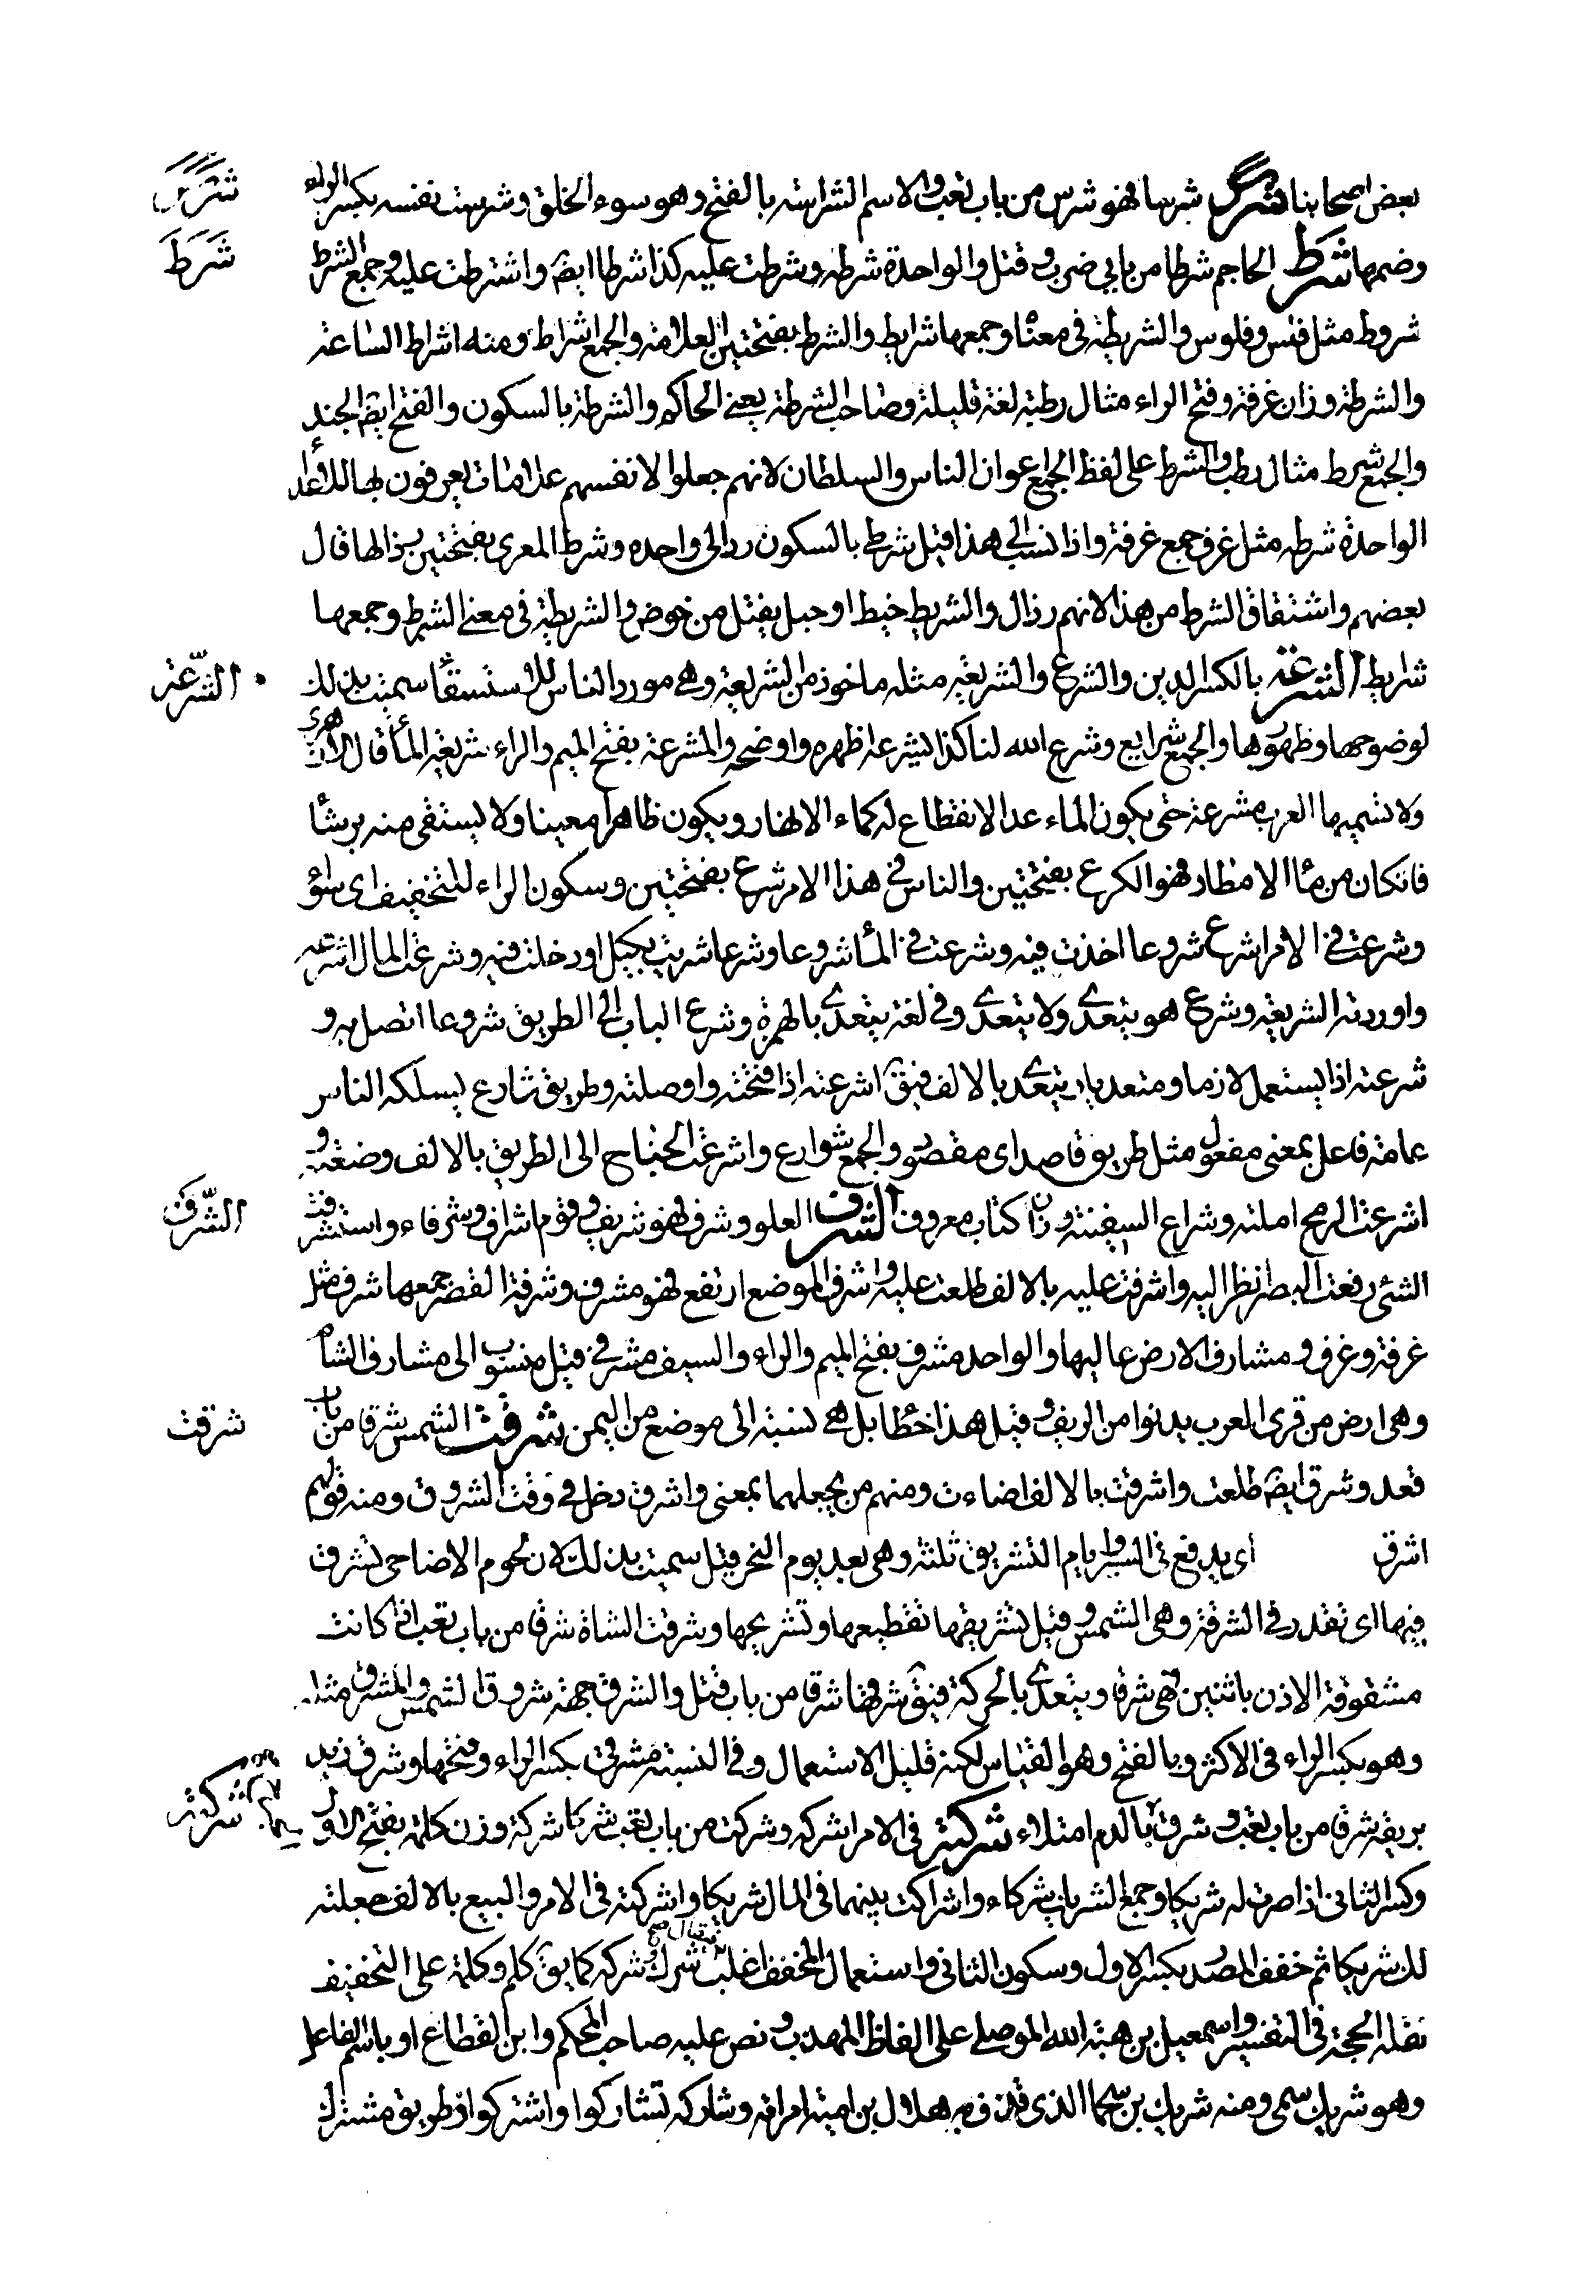 بعض اصحابنا شرس شرسا فهو شرس من باب تعب والاسم الشراسة بالفتح وهو سوء الخلق وشرست نفسه بكسر الراء
شرس
وضمها شرط الحاجم شرطا من بابي ضرب و قتل والواحدة شرطة وشرطت عليه كذا شرطا ايضا واشترطت عليه وجمع الشرط
شرط
شروط مثل فلس وفلوس والشريطة في معناه وجمعها شرايط والشرط بفتحتين العلامة والجمع اشراط ومنه اشراط الساعة
والشرطة وزان غرفة وفتح الراء مثال رطبة لغة قليلة وصاحب الشرطة يعني الحاكم والشرطة بالسكون والفتح ايضا الجند
والجمع شرط مثال رطب والشرط على لفظ الجمع اعوان الناس والسلطان لانهم جعلوا لانفسهم علامات يعرفون بها للاعداء
الواحدة شرطه مثل غرف جمع غرفة واذا نسب الى هذا قيل شرطي بالسكون ردا الى واحده وشرط المعزى بفتحتين رذالها قال
بعضهم واشتقاق الشرط من هذا لانهم رذال والشريط خيط او حبل يفتل من خوص والشريطة في معنى الشرط وجمعها
شرايط الشرعة بالكسر الدين والشرع والشريعة مثله ماخوذ من الشريعة وهي مورد الناس للاستسقا سميت بذلك
الشرعة
لوضوحها وظهورها والجمع شرايع وشرع الله لنا كذا يشرعه اظهره واوضحه والمشرعة بفتح الميم والراء شريعة الماء قال الازهري
ولا تسميها العرب مشرعة حتى يكون الماء عدا لا انقطاع له كماء الانهار ويكون ظاهرا معينا ولا يستقى منه برشا
فانكان من ماء الامطار فهو الكرع بفتحتين والناس في هذا الامر شرع بفتحتين وسكون الراء للتخفيف اى سواء
وشرعت في الامر اشرع شروعا اخذت فيه وشرعت في الماء شروعا وشرعا شربت بكفيك او دخلت فيه وشرعت المال اشرعه
واوردته الشريعة وشرع هو يتعدى ولا يتعدى وفي لغة يتعدى بالهمزة وشرع الباب الى الطريق شروعا اتصل به و
شرعته اذا يستعمل لازما ومتعديا ويتعدى بالالف فيق اشرعته اذا فتحته واوصلته وطريق شارع يسلكه الناس
عامة فاعل بمعنى مفعول مثل طريق قاصد اى مقصود والجمع شوارع واشرعت الجناح الى الطريق بالالف وضعته و
اشرعت الرمح املته وشراع السفينة وزان كتاب معروف الشرف العلو وشرف فهو شريف وقوم اشراف وشرفاء واستشرفت
الشرف
الشئ رفعت البصر انظر اليه واشرفت عليه بالالف طلعت عليه واشرف الموضع ارتفع فهو مشرف وشرفة القصر جمعها شرف مثل
غرفة وغرف ومشارف الارض عاليها والواحد مشرف بفتح الميم والراء والسيف مشرفي قيل منسوب الى مشارف الشام
وهى ارض من قرى العرب يدنوا من الريف و قيل هذا خطا بل هي نسبة الى موضع من اليمن شرقت الشمس شرقا من باب
شرقت
قعد وشرق ايضا طلعت واشرقت بالالف اضاءت ومنهم من يجعلهما بمعنى واشرق دخل في وقت الشروق ومنه قولهم
اشرق اى يدفع في السير وايام التشريق ثلثة وهى بعد يوم النحر قيل سميت بذلك لان لحوم الاضاحى تشرق
فيها اى تقدد في الشرقة وهى الشمس وقيل تشريقها تقطيعها وتشريحها وشرقت الشاة شرقا من باب تعب اذا كانت
مشقوقة الاذن باثنين فهى شرقا ويتعدى بالحركة فيق شرقها شرقا من باب قتل والشرق جهة شروق الشمس والمشرق مثله
وهو بكسر الراء فى الاكثر وبالفتح وهو القياس لكنه قليل الاستعمال وفى النسبة مشرقى بكسر الراء وفتحها وشرق زيد
بريقه شرقا من باب تعب وشرق بالدم امتلاء شركته فى الامر اشركه وشركت من باب تعب شركا شركة وزن كلمة بفتح الاول
شركته
وكسر الثانى اذا صرت له شريكا وجمع الشريك شركاء واشراكت بينهما فى المال شريكا واشركته فى الامر والبيع بالالف جعلته
لك شريكا ثم خفف المصدر بكسر الاول وسكون الثانى واستعمال المخفف اغلب شرك وشركه كما يق كلم وكلمة على التخفيف
نقله الحجة فى التفسير واسمعيل بن هبة الله الموصلى على الفاظ المهذب و نص عليه صاحب المحكم وابن القطاع او باسم الفاعل
وهو شريك سمى ومنه شريك بن سحما الذى قذف به هلال بن امية امراته وشاركه تشاركوا واشتركوا وطريق مشترك